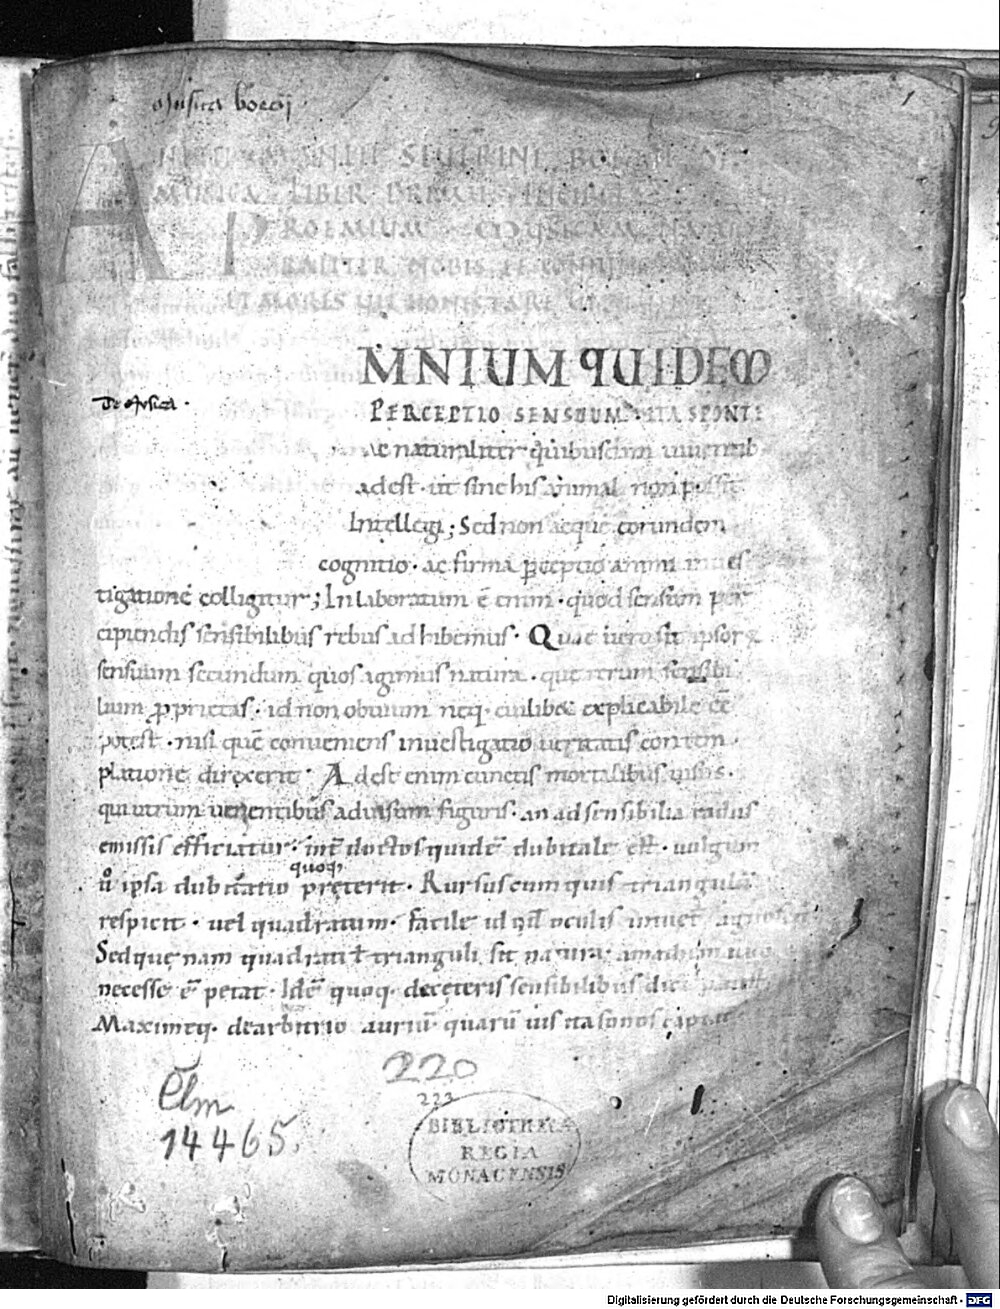 Musica boecij
1
ANICII MANLII SEUERINI BOETII DE
MUSICA LIBER PRIMUS INCIPIT
PROEMIUM MUSICAM NATU
RALITER NOBIS ET CONIUNC
ET MORES UEL HONESTARE UEL
MNIUM QUIDEM
De Musica .
PERCEPTIO SENSUUM. ITA SPONTE
Ac naturaliter quibusdam uiuentib
adest. ut sine his animal non possit
Intellegi; Sed non aeque eorundem
cognitio. ac firma pceptio animi inues
tigatione colligitur; Inlaboratum ē enim. quod sensum per
cipiendis sensibilibus rebus adhibemus. Quae uero sit ipsorū
sensuum secundum quos agimus natura. que rerum sensibi
lium pprietas. id non obuium neq. cuilib& explicabile eē
potest. nisi quē conueniens inuestigatio ueritatis contem
platione direxerit. Adest enim cunctis mortalibus uisus.
qui utrum uenentibus ad uisum figuris. an ad sensibilia radiis
emissis efficiatur. int doctos quidē dubitabile est. uulgum
quoq,
u ipsa dubitatio pręterit. Rursus cum quis triangulū
respicit. uel quadratum. facile id qd oculis intuet agnoscit
Sed quęnam quadrati ł trianguli sit natura. a mathematico
necesse ē petat. Idē quoq. de cęteris sensibilibus dici potest
Maximeq. de arbitrio auriū. quarū uis ita sonos captat
220
223
Clm
14465.
BIBLIOTHECA
REGIA
MONACENSIS
Digitalisierung gefördert durch die Deutsche Forschungsgemeinschaft - DFG